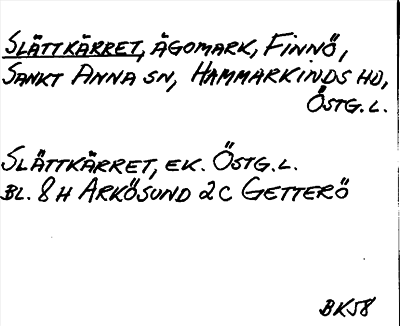 SLÄTTKÄRRET, ÄGOMARK, FINNÖ,
SANKT ANNA SN, HAMMARKINDS HD,
ÖSTG. L.
SLÄTTKÄRRET, EK. ÖSTG. L.
BL. 8 H ARKÖSUND 2 C GETTERÖ
BK58